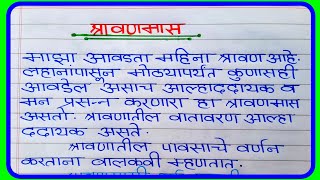 श्रावणमास
माझा आवडता महिना श्रावण आहे.
लहानापासून मोठ्यापर्यंत कुणासही
आवडेल असाच आल्हाददायक व
मन प्रसन्न करणारा हा श्रावणमास
असतो. श्रावणातील वातावरण आल्हा
ददायक असते.
श्रावणातील पावसाचे वर्णन
करताना बालकवी म्हणतात.